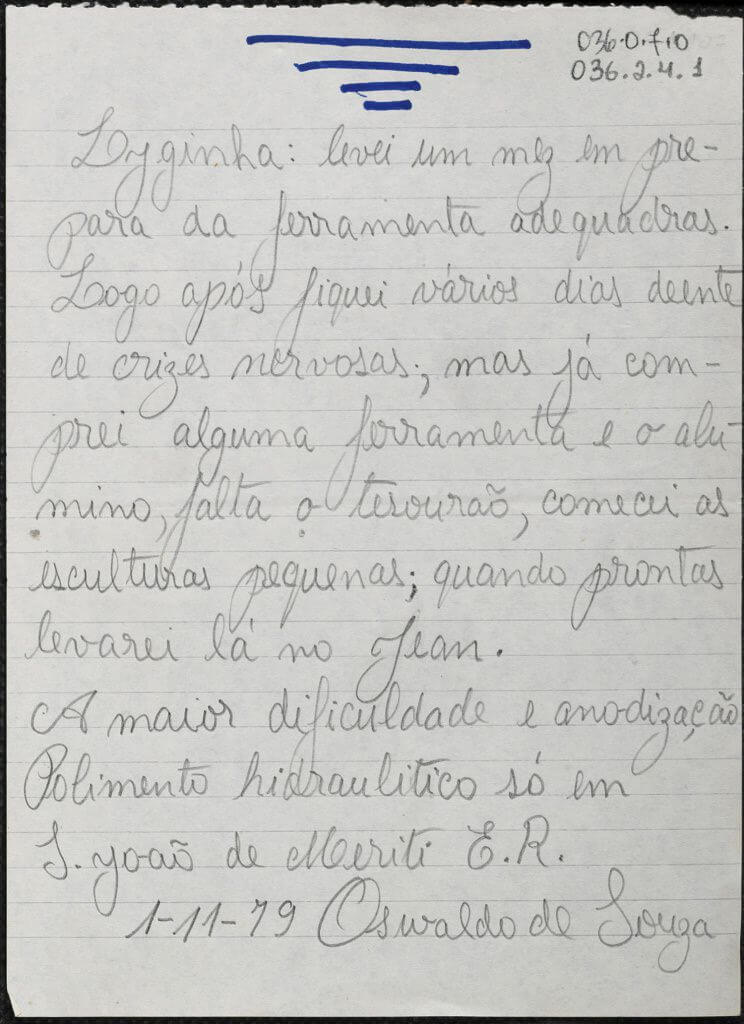 036.0.710
036.2.4.1
Lyginha: levei um mez em pre-
para da ferramenta adequadras.
Logo após fiquei vários dias deente
de crizes nervosas; mas já com-
prei alguma ferramenta e o alu-
mino, falta o tesourão, comecei as
esculturas pequenas; quando prontas
levarei lá no Jean.
A maior dificuldade e anodização
Polimento hidraulitico só em
S. yoaõ de Meriti E.R.
1-11-79 Oswaldo de Souza